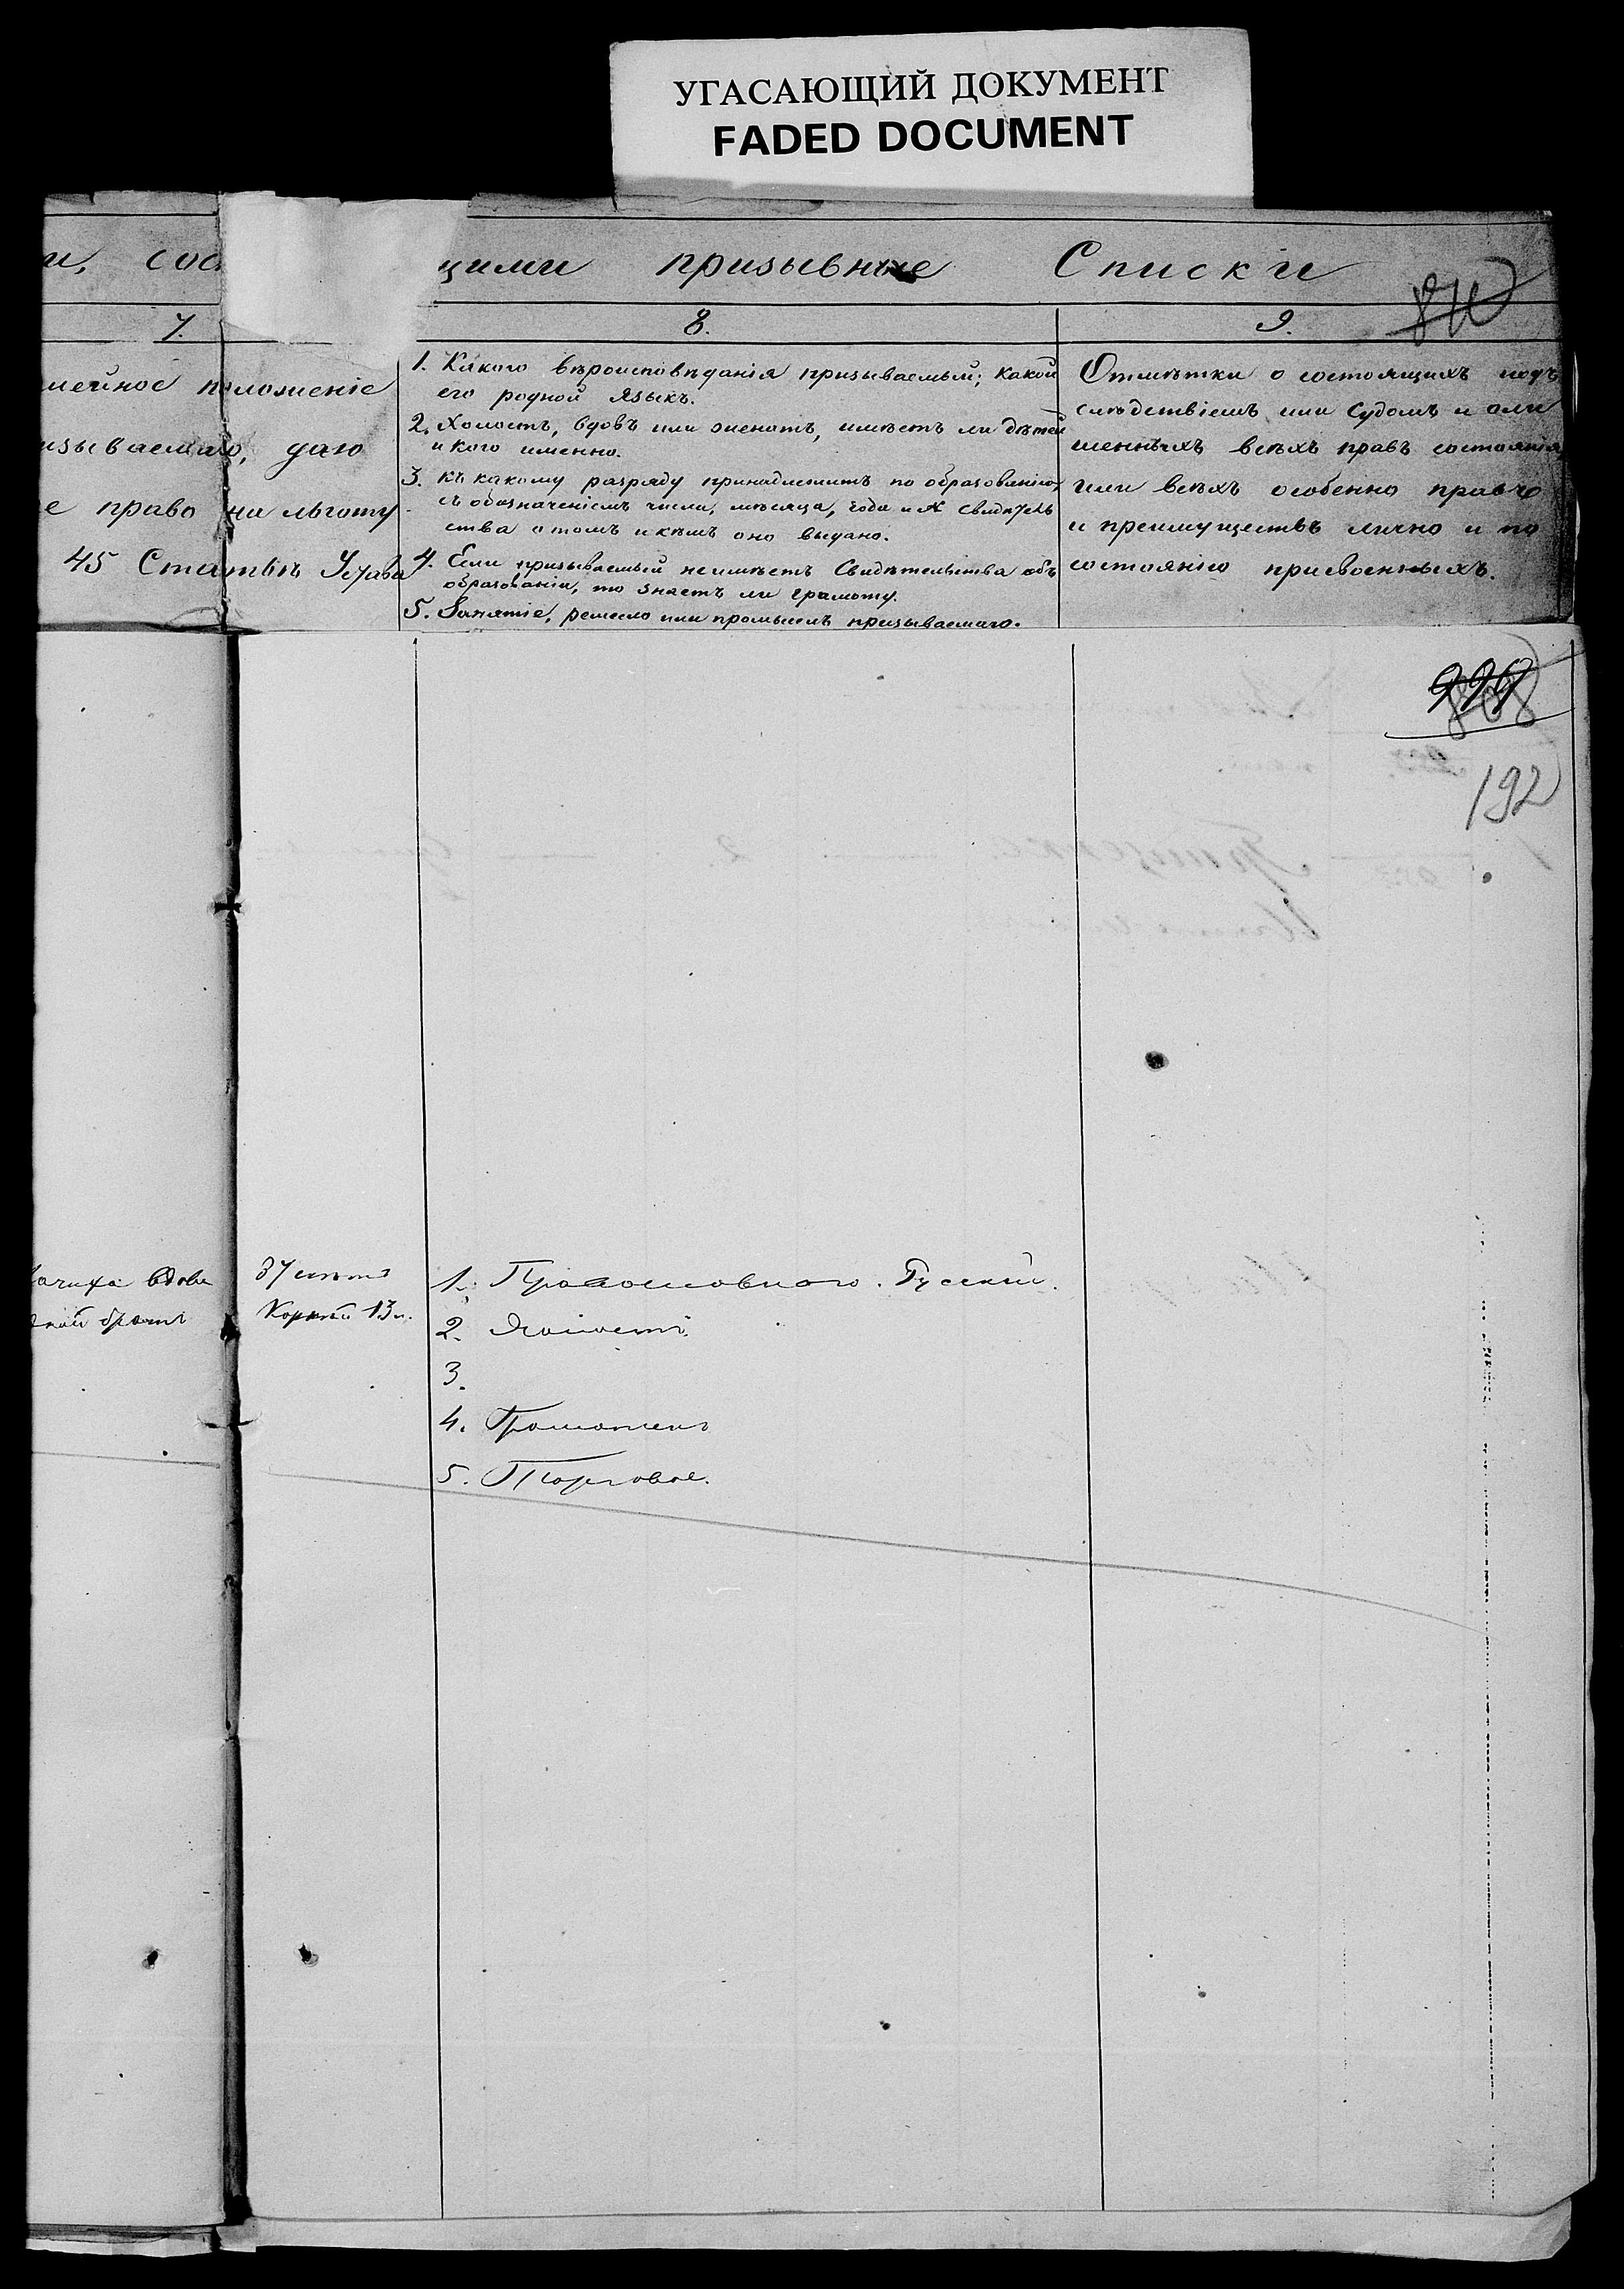 УГАСАЮЩИЙ ДОКУМЕНТ
FADED DOCUMENT
и, сос щими призывные Списки
7. 8. 9.
мейное положеніе
изываемаго, даю
е право на льготу
45 Статьѣ Устава
1. Какого вѣроисповѣданія призываемый; какой
его родной языкъ.
2. Холостъ, вдовъ или женатъ, имѣетъ ли дѣтей
и кого именно.
3. къ какому разряду принадлежитъ по образованію,
съ обозначеніемъ числа, мѣсяца, года и № Свидѣтель
ства о томъ и кѣмъ оно выдано.
4. Если призываемый неимѣетъ Свидѣтельства объ
образованіи, то знаетъ ли грамоту.
5. Занятіе, ремесло или промыселъ призываемаго.
Отмѣтки о состоящихъ подъ
слѣдствіемъ или Судомъ и оли
шенныхъ всѣхъ правъ состоянія
или всѣхъ особенно правъ
и преимуществъ лично и по
состоянію присвоенныхъ.
999
868
192
вдова 37 лѣтъ
братъ Корнѣй 13 л.
1. Православного. Русскій.
2. Холостъ.
3.
4. Грамотенъ
5. Торговое.